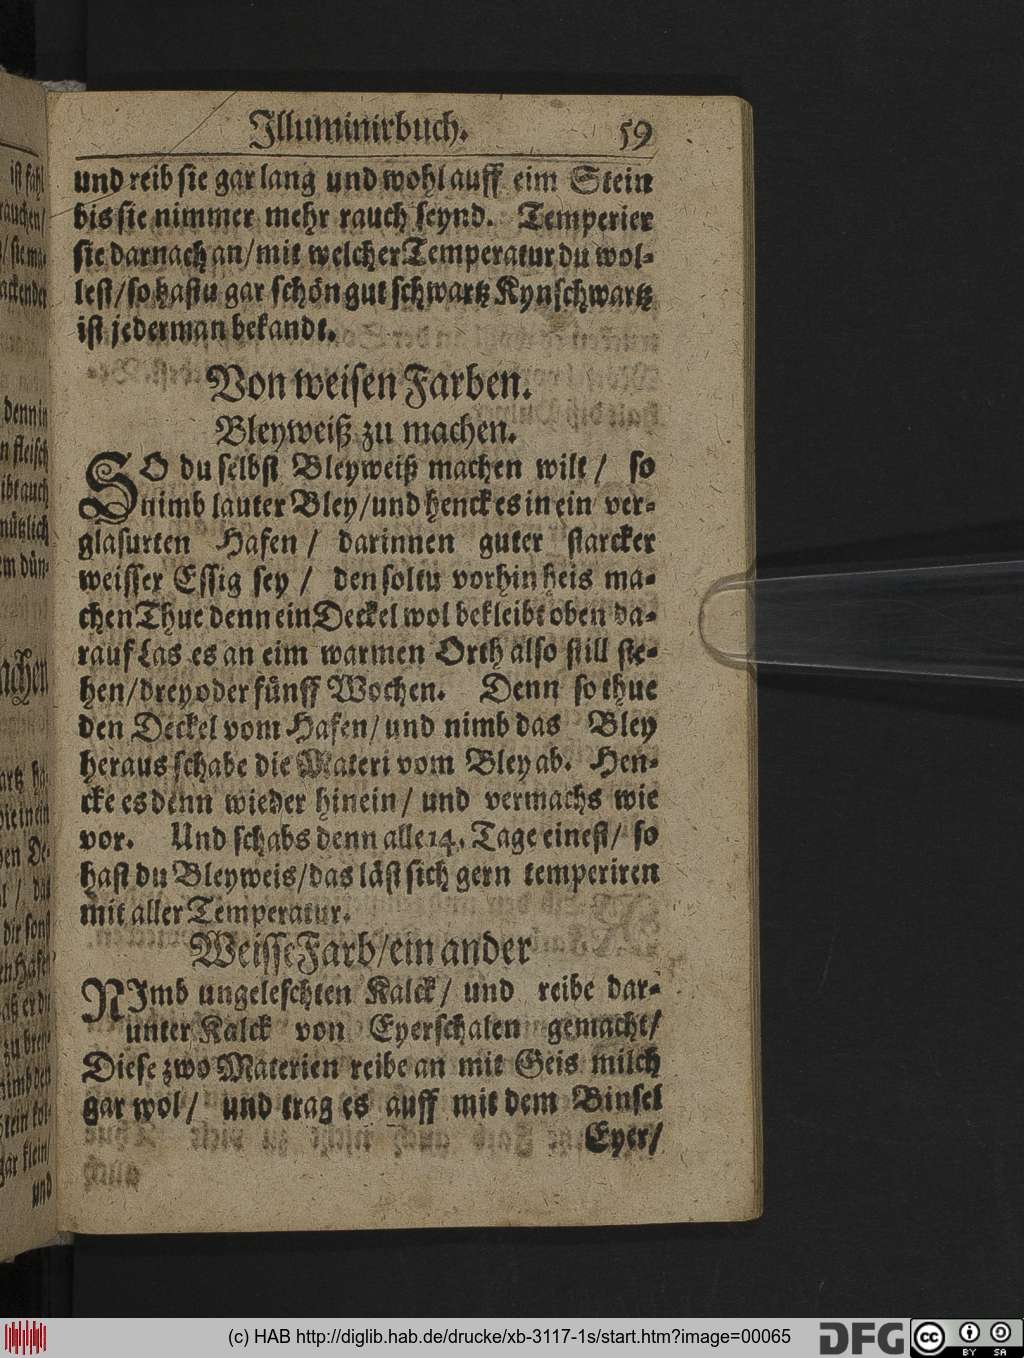 Illuminirbuch. 59
und reib sie gar lang und wohl auff eim Stein
bis sie nimmer mehr rauch seynd. Temperier
sie darnach an/ mit welcher Temperatur du wol-
lest/ so hastu gar schön gut schwartz Kynschwartz
ist jederman bekandt.
Von weisen Farben.
Bleyweiß zu machen.
SO du selbst Bleyweiß machen wilt/ so
nimb lauter Bley/ und henck es in ein ver-
glasurten Hafen/ darinnen guter starcker
weisser Essig sey/ den soltu vorhin heis ma-
chen Thue denn ein Deckel wol bekleibt oben da-
rauf Las es an eim warmen Orth also still ste-
hen/ drey oder fünff Wochen. Denn so thue
den Deckel vom Hafen/ und nimb das Bley
heraus schabe die Materi vom Bley ab. Hen-
cke es denn wieder hinein/ und vermachs wie
vor. Und schabs denn alle 14. Tage einest/ so
hast du Bleyweis/ das läst sich gern temperiren
mit aller Temperatur.
Weisse Farb/ ein ander
NImb ungeleschten Kalck/ und reibe dar-
unter Kalck von Eyerschalen gemacht/
Diese zwo Materien reibe an mit Geis milch
gar wol/ und trag es auff mit dem Binsel
Eyer/
(c) HAB http://diglib.hab.de/drucke/xb-3117-1s/start.htm?image=00065
DFG
cc BY SA